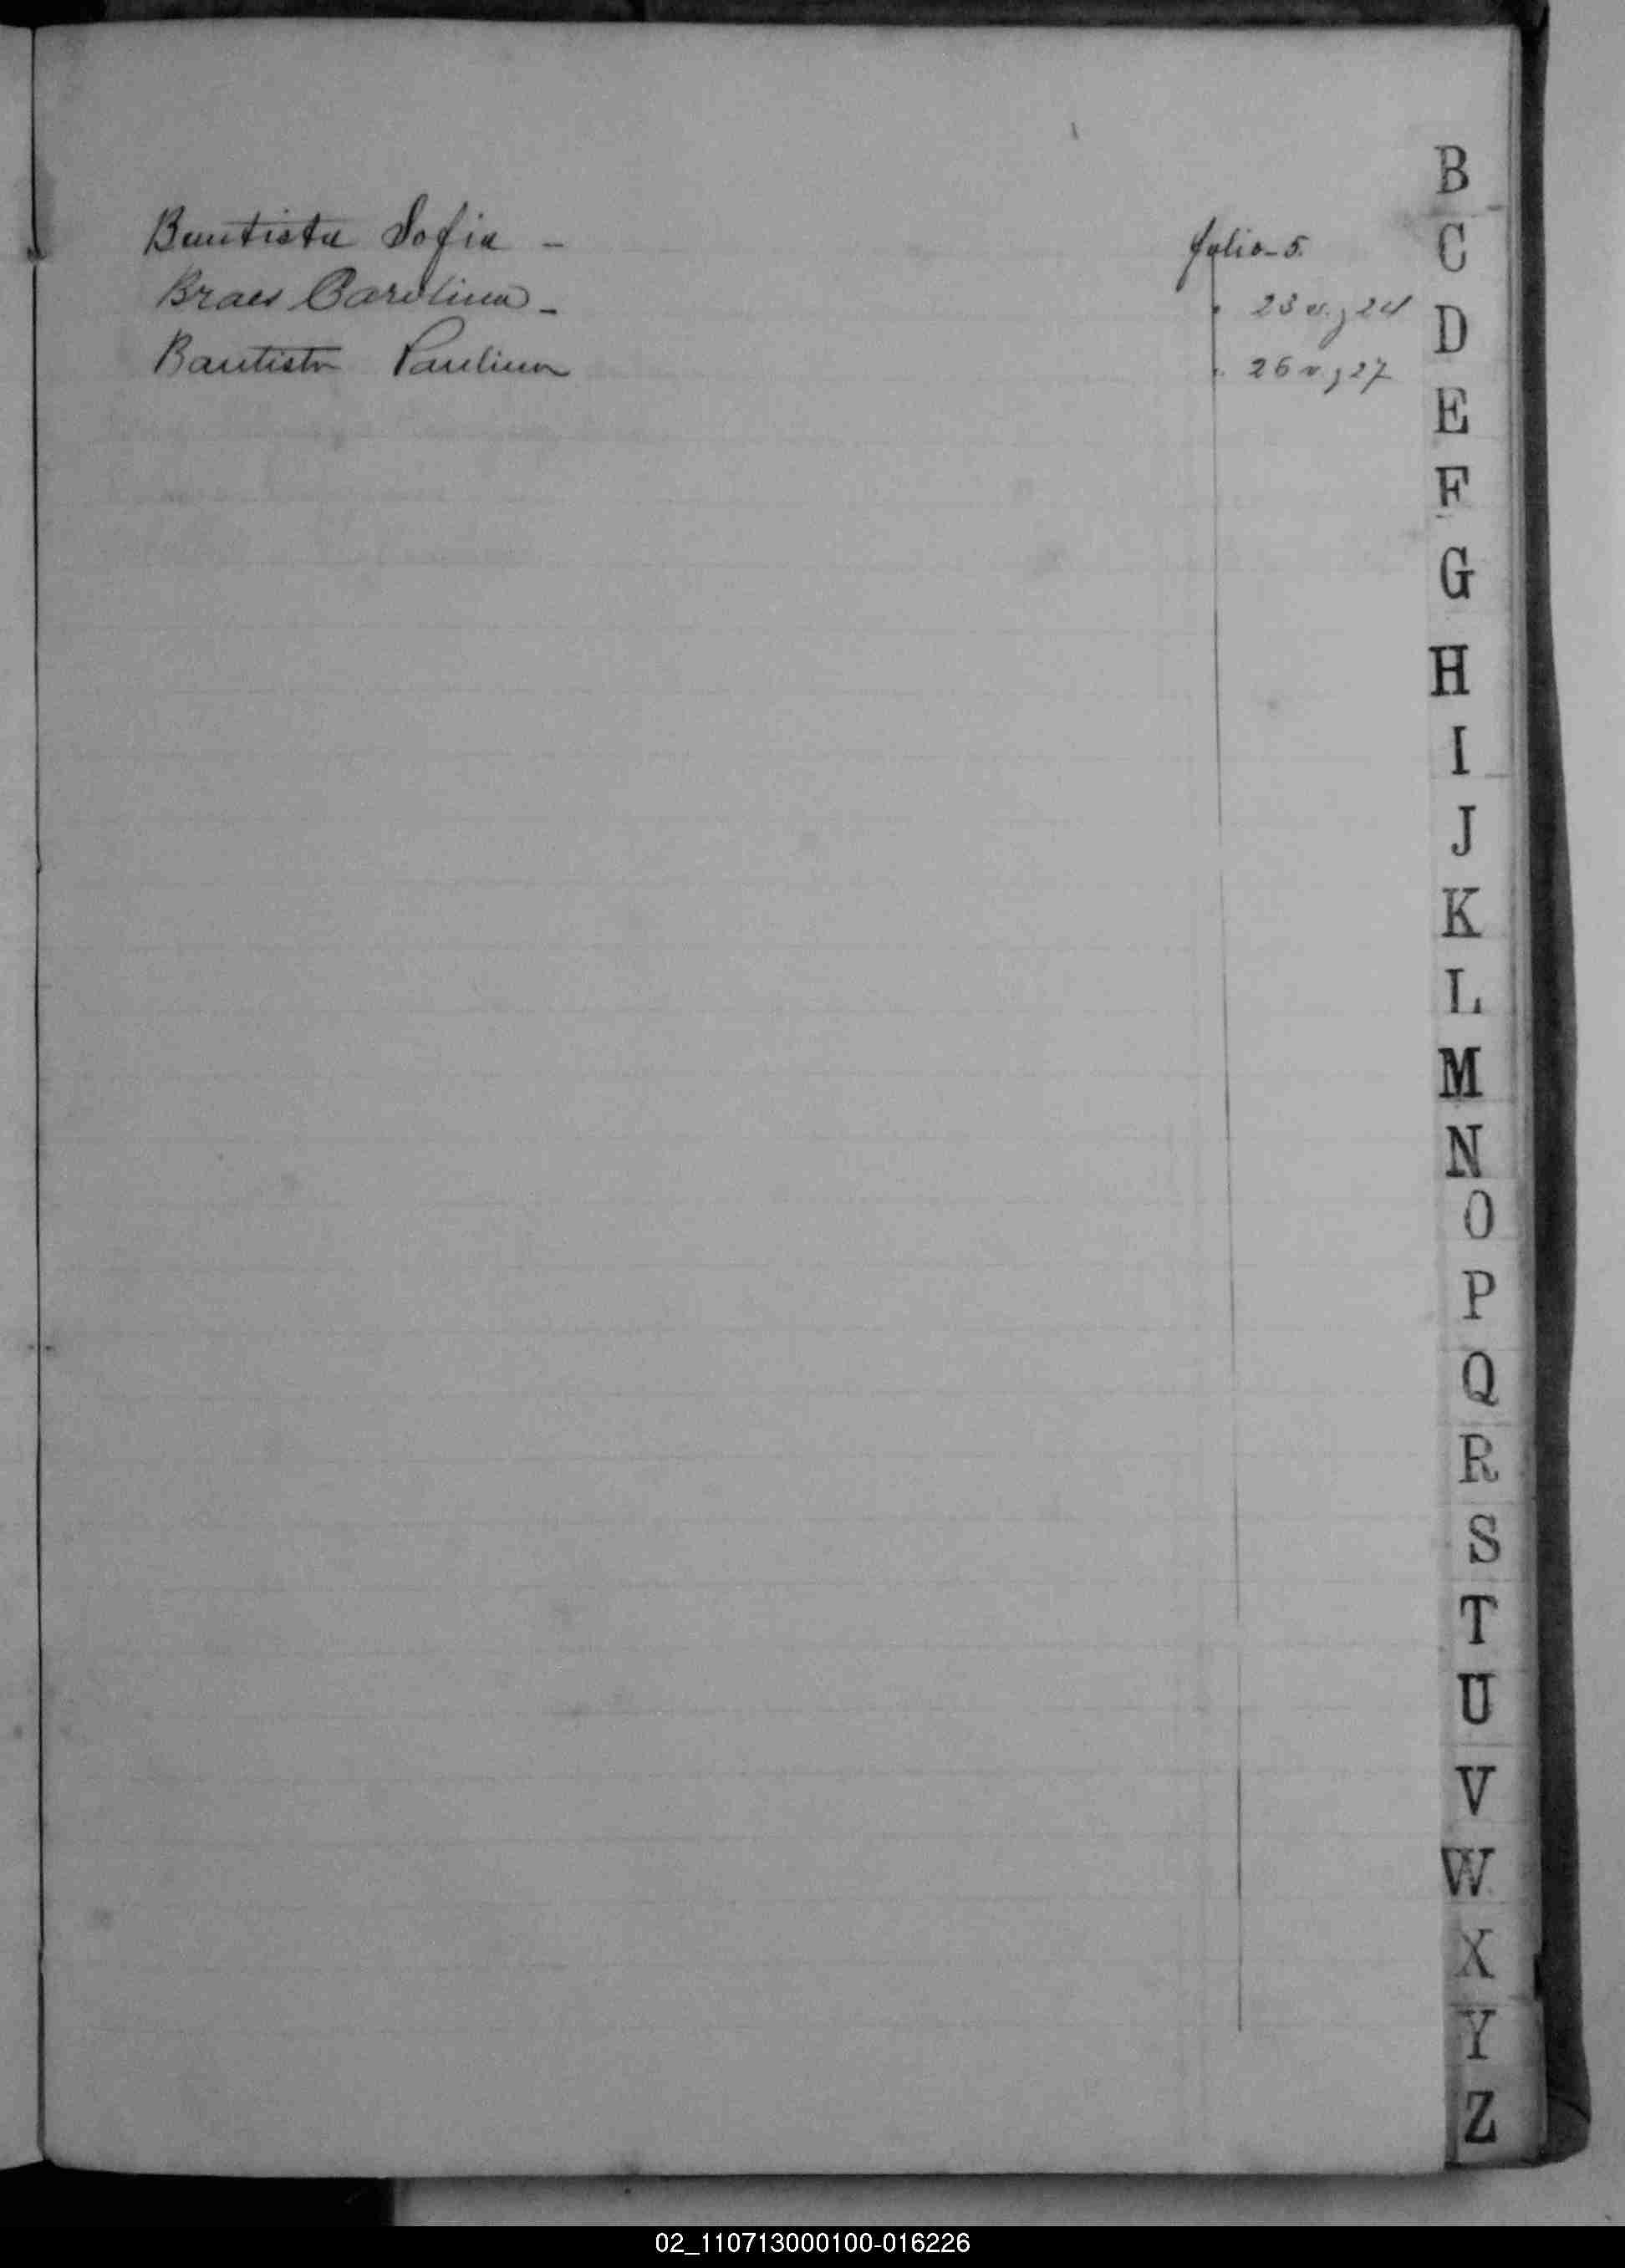 Bautista Sofia - folio - 5.
Braes Carolina - " 23 v. y 24
Bautista Paulina " 26 v. y 27
B
C
D
E
F
G
H
I
J
K
L
M
N
O
P
Q
R
S
T
U
V
W
X
Y
Z
02_110713000100-016226